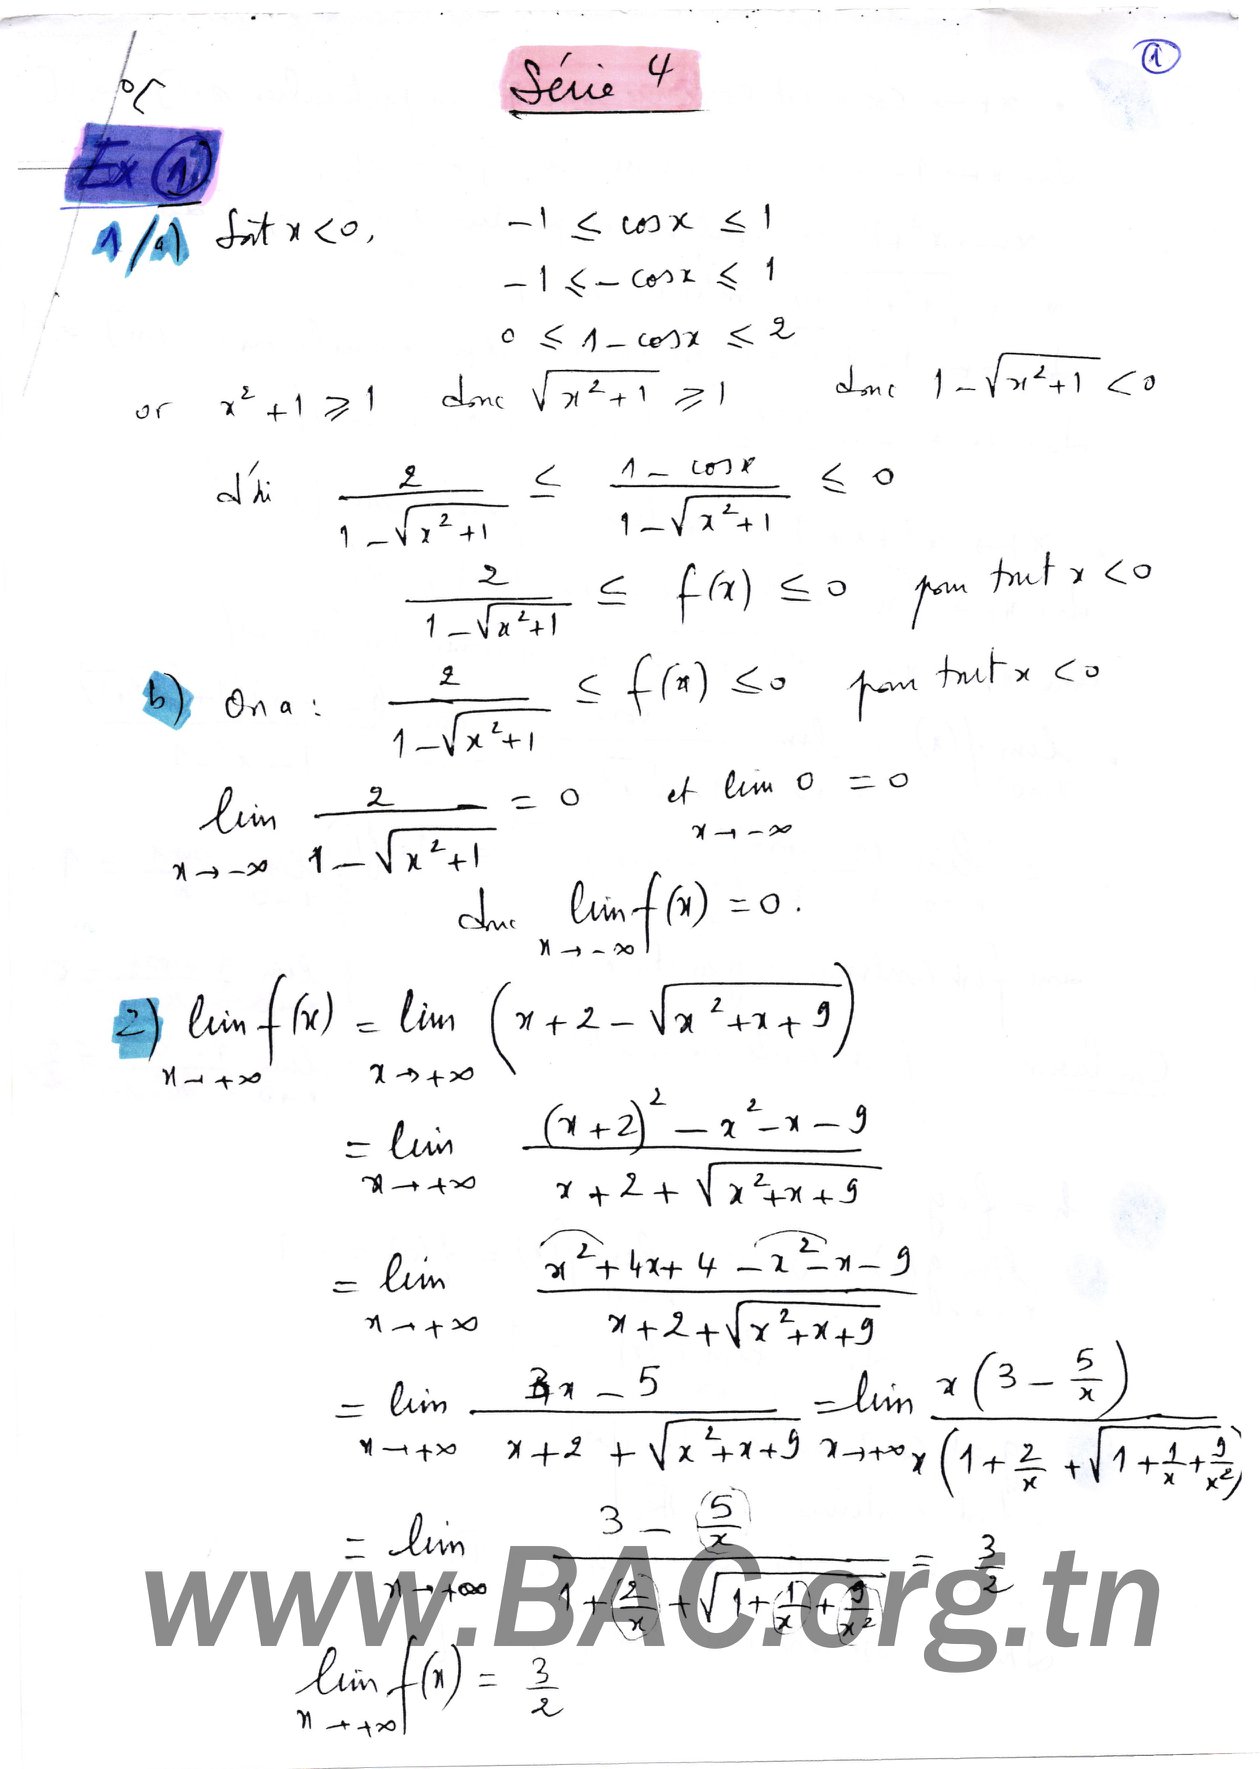 Série 4
1
Ex 1
1/a) Soit x < 0, -1 ≤ cosx ≤ 1
-1 ≤ - cosx ≤ 1
0 ≤ 1 - cosx ≤ 2
or x² + 1 ≥ 1 donc √(x²+1) ≥ 1 donc 1 - √(x²+1) < 0
d'où 2/(1 - √(x²+1)) ≤ (1 - cosx)/(1 - √(x²+1)) ≤ 0
2/(1 - √(x²+1)) ≤ f(x) ≤ 0 pour tout x < 0
b) On a : 2/(1 - √(x²+1)) ≤ f(x) ≤ 0 pour tout x < 0
lim x→-∞ 2/(1 - √(x²+1)) = 0 et lim x→-∞ 0 = 0
donc lim x→-∞ f(x) = 0.
2) lim x→+∞ f(x) = lim x→+∞ (x + 2 - √(x² + x + 9))
= lim x→+∞ ((x+2)² - x² - x - 9)/(x + 2 + √(x²+x+9))
= lim x→+∞ (x² + 4x + 4 - x² - x - 9)/(x + 2 + √(x²+x+9))
= lim x→+∞ (3x - 5)/(x + 2 + √(x²+x+9)) = lim x→+∞ x(3 - 5/x)/x(1 + 2/x + √(1 + 1/x + 9/x²))
= lim x→+∞ (3 - 5/x)/(1 + 2/x + √(1 + 1/x + 9/x²)) = 3/2
www.BAC.org.tn
lim x→+∞ f(x) = 3/2